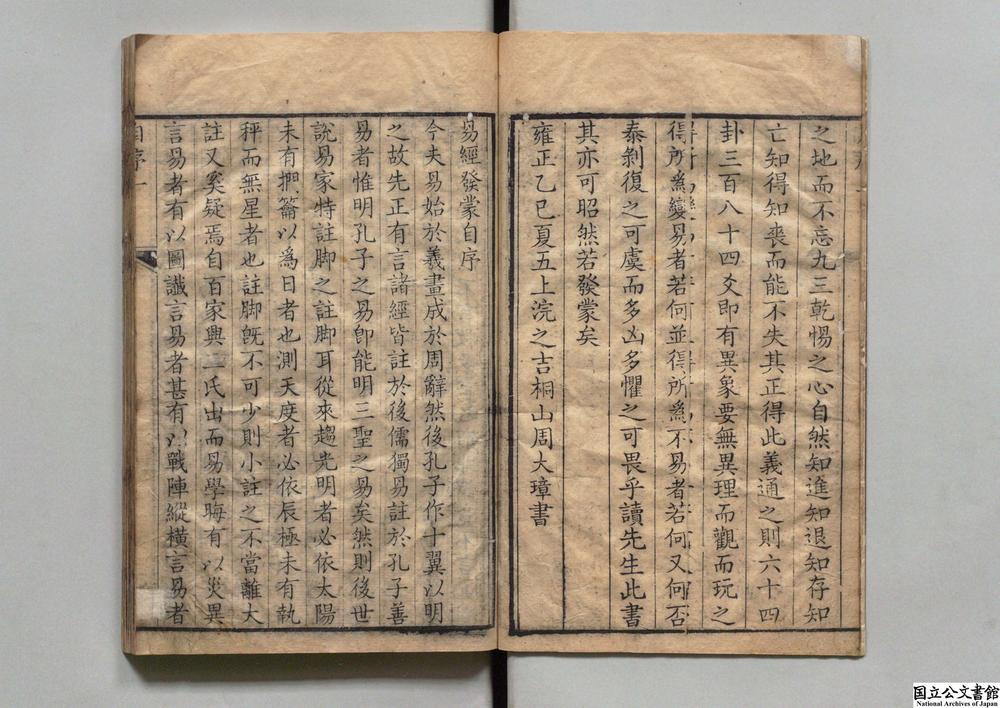 之地而不忘九三乾惕之心自然知進知退知存知
亡知得知喪而能不失其正得此義通之則六十四
卦三百八十四爻即有異象要無異理而觀而玩之
得所為變易者若何並得所為不易者若何又何否
泰剝復之可虞而多凶多懼之可畏乎讀先生此書
其亦可昭然若發蒙矣
雍正乙巳夏五上浣之吉桐山周大璋書
易經發蒙自序
今夫易始於羲畫成於周辭然後孔子作十翼以明
之故先正有言諸經皆註於後儒獨易註於孔子善
易者惟明孔子之易卽能明三聖之易矣然則後世
說易家特註脚之註脚耳從來趨光明者必依太陽
未有捫籥以為日者也測天度者必依辰極未有執
秤而無星者也註脚旣不可少則小註之不當離大
註又奚疑焉自百家興二氏出而易學晦有以災異
言易者有以圖讖言易者甚有以戰陣縱橫言易者
自序一
国立公文書館
National Archives of Japan